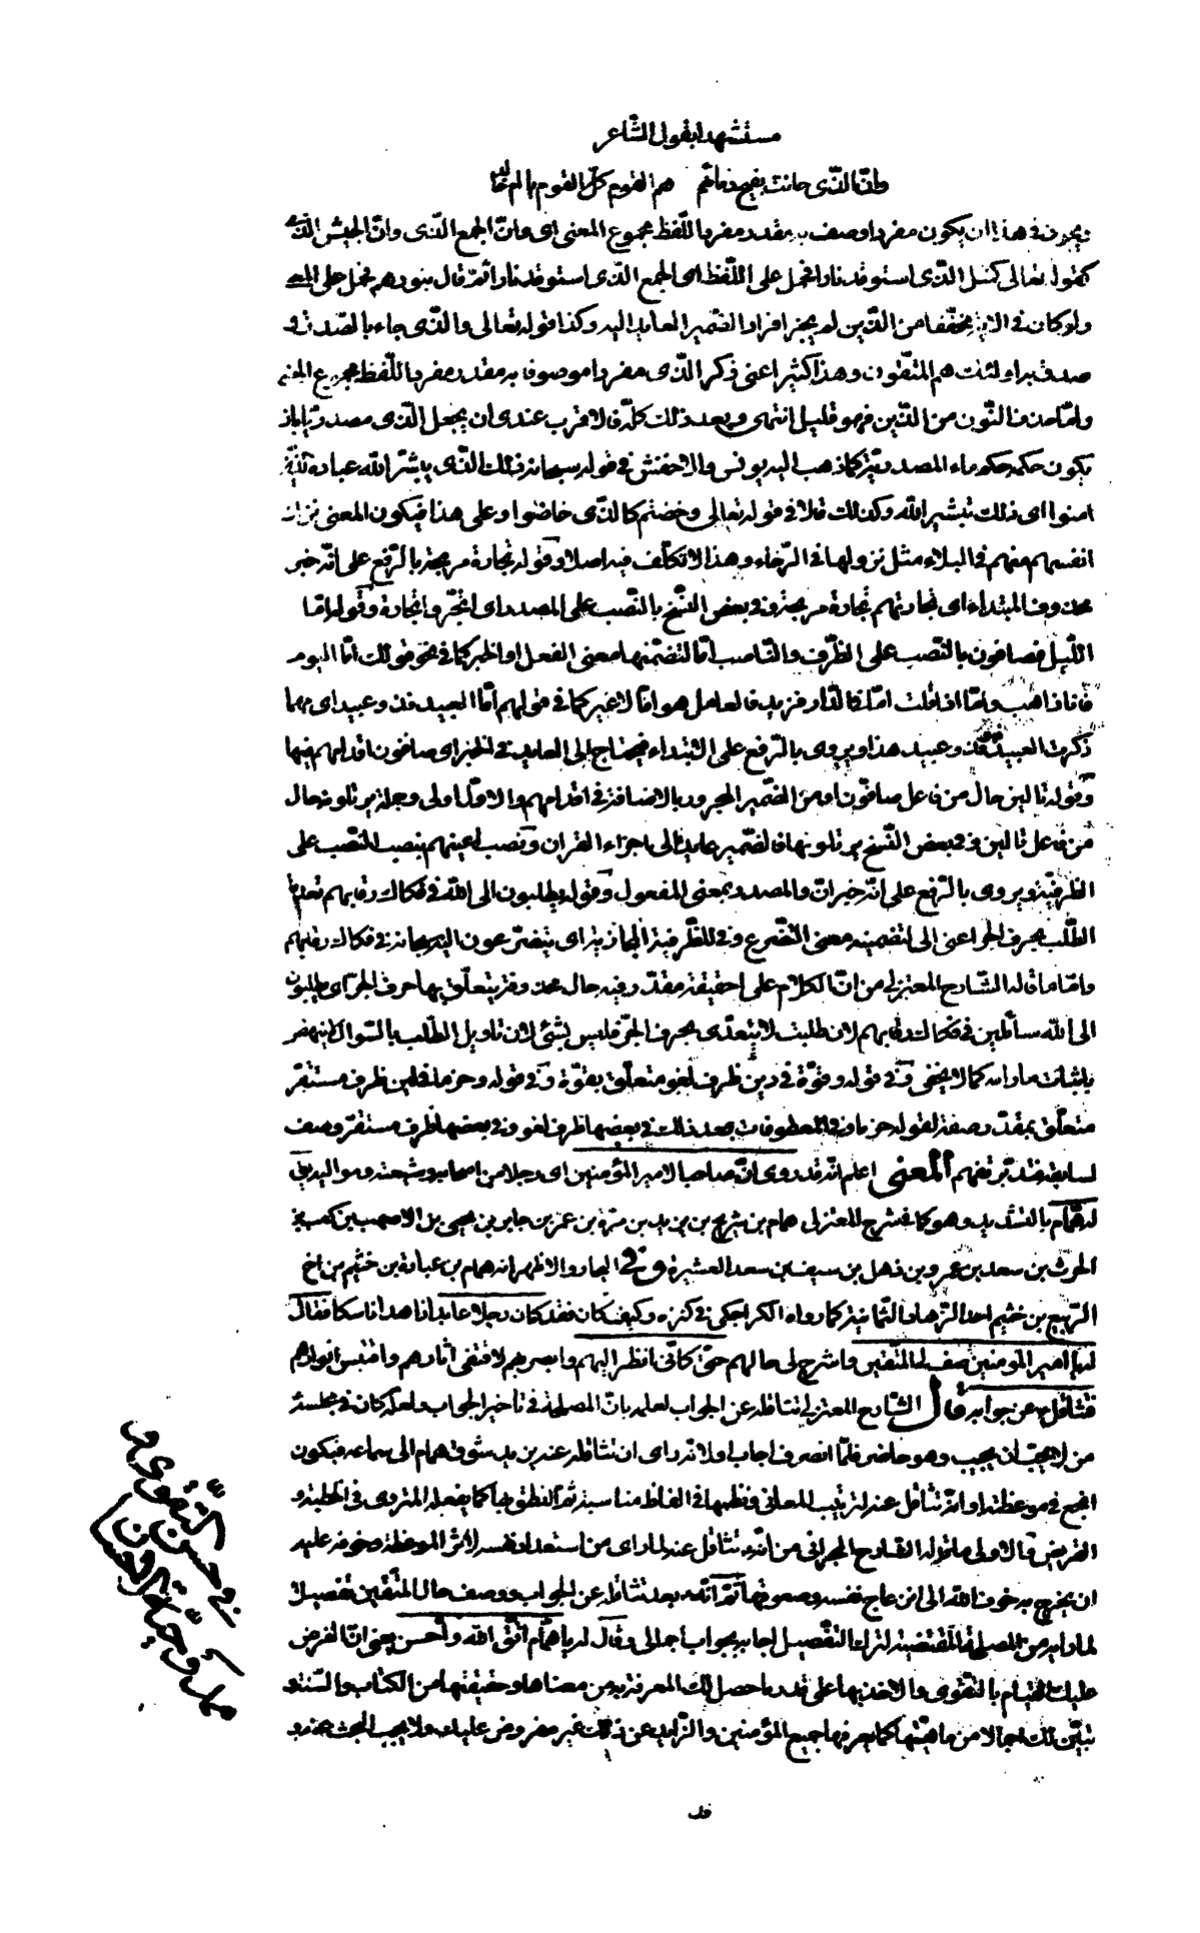 مستشهدا بقول الشاعر
وانّ الذّى حانت بفلج دمائهم هم القوم كلّ القوم يا امّ خالد
يجوز فى هذا ان يكون مفردا وصف به مقدر مفرد اللّفظ مجموع المعنى اى وانّ الجمع الذّى وانّ الجيش الذّى
كقوله تعالى كمثل الذّى استوقد نارا فحمل على اللّفظ اى الجمع الذّى استوقد نارا ثمّ قال بنورهم فحمل على المعنى
ولو كان فى الاية مخفّفا من الذّين لم يجز افراد الضّمير العايد اليه وكذا قوله تعالى والذّى جاء بالصّدق و
صدق به اولئك هم المتّقون وهذا كثير اعنى ذكر الذّى مفردا موصوفا به مقدر مفرد اللّفظ مجموع المعنى
وامّا حذف النّون من الذّين فهو قليل انتهى وبعد ذلك كلّه فالاقرب عندى ان يجعل الذّى مصدريّا بان
يكون حكمه حكم ماء المصدريّة كما ذهب اليه يونس والاخفش فى قوله سبحانه ذلك الذّى يبشّر اللّه عباده الذين
امنوا اى ذلك تبشير اللّه وكذلك قالا فى قوله تعالى وخضتم كالذّى خاضوا وعلى هذا فيكون المعنى نزلت
انفسهم منهم فى البلاء مثل نزولها فى الرّخاء وهذا لا تكلّف فيه اصلا وقوله تجارة مربحة بالرّفع على انّه خبر
محذوف المبتداء اى تجارتهم تجارة مربحة وفى بعض النّسخ بالنّصب على المصدر اى اتّجروا تجارة وقوله امّا
اللّيل فصافون بالنّصب على الظّرف والنّاصب امّا لتضمّنها معنى الفعل او الخبر كما فى نحو قولك امّا اليوم
فانا ذاهب وامّا اذا قلت امّا فى الدّار فزيد فالعامل هو امّا لا غير كما فى قولهم امّا العبيد فذو عبيد اى مهما
ذكرت العبيد فذو عبيد هذا ويروى بالرّفع على الابتداء فيحتاج الى العايد فى الخبر اى صافون اقدامهم فيها
وقوله تالين حال من فاعل صافّون او من الضّمير المجرور بالاضافة فى اقدامهم والاوّل اولى وجملة يرتلونه حال
من فاعل تالين وفى بعض النّسخ يرتلونها فالضّمير عايد الى اجزاء القران ونصب اعينهم بنصب النّصب على
الظرفيّة ويروى بالرّفع على انّه خبر انّ والمصدر بمعنى المفعول وقوله يطلبون الى اللّه فى فكاك رقابهم تعدية
الطّلب بحرف الجرّ اعنى الى لتضمينه معنى التّضرع وفى للظّرفيّة المجازيّة اى يتضرّعون اليه سبحانه فى فكاك رقابهم
وامّا ما قاله الشّارح المعتزلى من انّ الكلام على حقيقته مقدّر فيه حال محذوفة يتعلّق بها حرف الجرّ اى يطلبون
الى اللّه سائلين فى فكاك رقابهم لان طلبت لا يتعدّى بحرف الجرّ فليس بشئ لان تاويل الطّلب بالسّؤال لا ينهض
باثبات مارامه كما لا يخفى وفى قوله وقوّة فى دين ظرف لغو متعلّق بقوّة وفى قوله وحزما فى لين ظرف مستقرّ
متعلّق بمقدّر صفة لقوله حزما وفى المعطوفات بعد ذلك فى بعضها ظرف لغو وفى بعضها ظرف مستقرّ وصف
لسابقه فتدبّر تفهم المعنى اعلم انّه قد روى انّ صاحبا لامير المؤمنين اى رجلا من اصحابه وشيعته ومواليه يق
له همّام بالتشديد وهو كما فى شرح المعتزلى همام بن شريح بن يزيد بن مرّة بن عمر بن جابر بن يحيى بن الاصهب بن كعب بن
الحرث بن سعد بن عمرو بن ذهل بن سيف بن سعد العشيرة وفى البحار والاظهر انه همام بن عبادة بن خثيم بن اخ
الرّبيع بن خثيم احد الزهاد الثّمانية كما رواه الكراجكى فى كنزه وكيف كان فقد كان رجلا عابدا زاهدا ناسكا فقال
له يا امير المؤمنين صف لى المتّقين واشرح لى حالهم حتى كانّى انظر اليهم وابصرهم لاقتفى آثارهم واقتبس انوارهم
فتثاقل عن جوابه قال الشّارح المعتزلى تثاقله عن الجواب لعلمه بانّ المصلحة فى تاخير الجواب ولعلّه كان فى مجلسه
من لا يحبّ ان يجيب وهو حاضر فلمّا انصرف اجاب او لانّه راى ان تثاقله عنه يزيد شوق همام الى سماعه فيكون
انجع فى موعظته او انّه تثاقل عنه لترتيب المعانى ونظمها فى الفاظ مناسبة ثمّ النطق بها كما يفعله المتروى فى الخطبة و
القريض قال الاولى ما قاله الشارح البحرانى من انّه تثاقل عنه لما راى من استعداد نفسه لاثر الموعظة وخوفه عليه
ان يخرج به خوف اللّه الى انزعاج نفسه وصعوقها ثمّ انّه بعد تثاقله عن الجواب ووصف حال المتّقين تفصيلا
لما راه من المصلحة المقتضية لترك التّفصيل اجابه بجواب اجمالى وقال له يا همّام اتّق اللّه واحسن يعنى انّ الفرض
عليك القيام بالتقوى والاخذ بها على قدر ما حصل لك المعرفة به من معناها وحقيقتها من الكتاب والسّنة و
تبيّن لك اجمالا من ماهيّتها كما يعرفها جميع المؤمنين والزّايد عن ذلك غير مفروض عليك ولا يجب البحث عنه و
قد